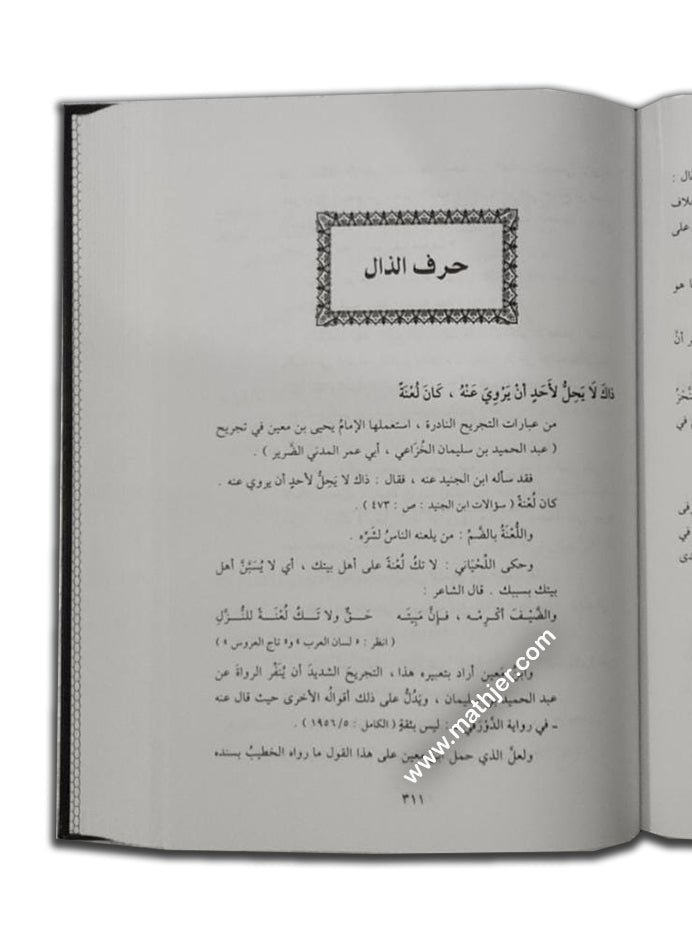 حرف الذال
ذاكَ لَا يَحِلُّ لأَحَدٍ أنْ يَرْوِيَ عَنْهُ ، كَانَ لُعْنَةً
من عبارات التجريح النادرة ، استعملها الإمامُ يحيى بن معين في تجريح
( عبد الحميد بن سليمان الخُزَاعي ، أبي عمر المدني الضَّرير ) .
فقد سأله ابن الجنيد عنه ، فقال : ذاك لا يَحِلُّ لأحدٍ أن يروي عنه .
كان لُعْنةً ( سؤالات ابن الجنيد : ص : ٤٧٣ ) .
واللُّعْنَةُ بالضَّمِّ : من يلعنه الناسُ لشَرِّه .
وحكى اللِّحْيَاني : لا تكُ لُعنةً على أهل بيتك ، أي لا يُسَبَّنَّ أهل
بيتك بسببك . قال الشاعر :
والضَّيْـفَ أكْرِمْـه ، فـإنَّ مَبِيتَـه حَـــقٌّ ولا تَـــكُ لُعْنَـــةً للنُّـــزَّلِ
( انظر : « لسان العرب » و« تاج العروس » )
معين أراد بتعبيره هذا ، التجريحَ الشديدَ أن يُنَفِّر الرواةَ عن
عبد الحميد بن سليمان ، ويَدُلُّ على ذلك أقوالُه الأخرى حيث قال عنه
ـ في رواية الدَّوْرَقي : ليس بثقةٍ ( الكامل : ١٩٥٦/٥ ) .
ولعلَّ الذي حمل معين على هذا القول ما رواه الخطيبُ بسنده
٣١١
www.mathjer.com
قال :
على
ما هو
أنَّ
في
في